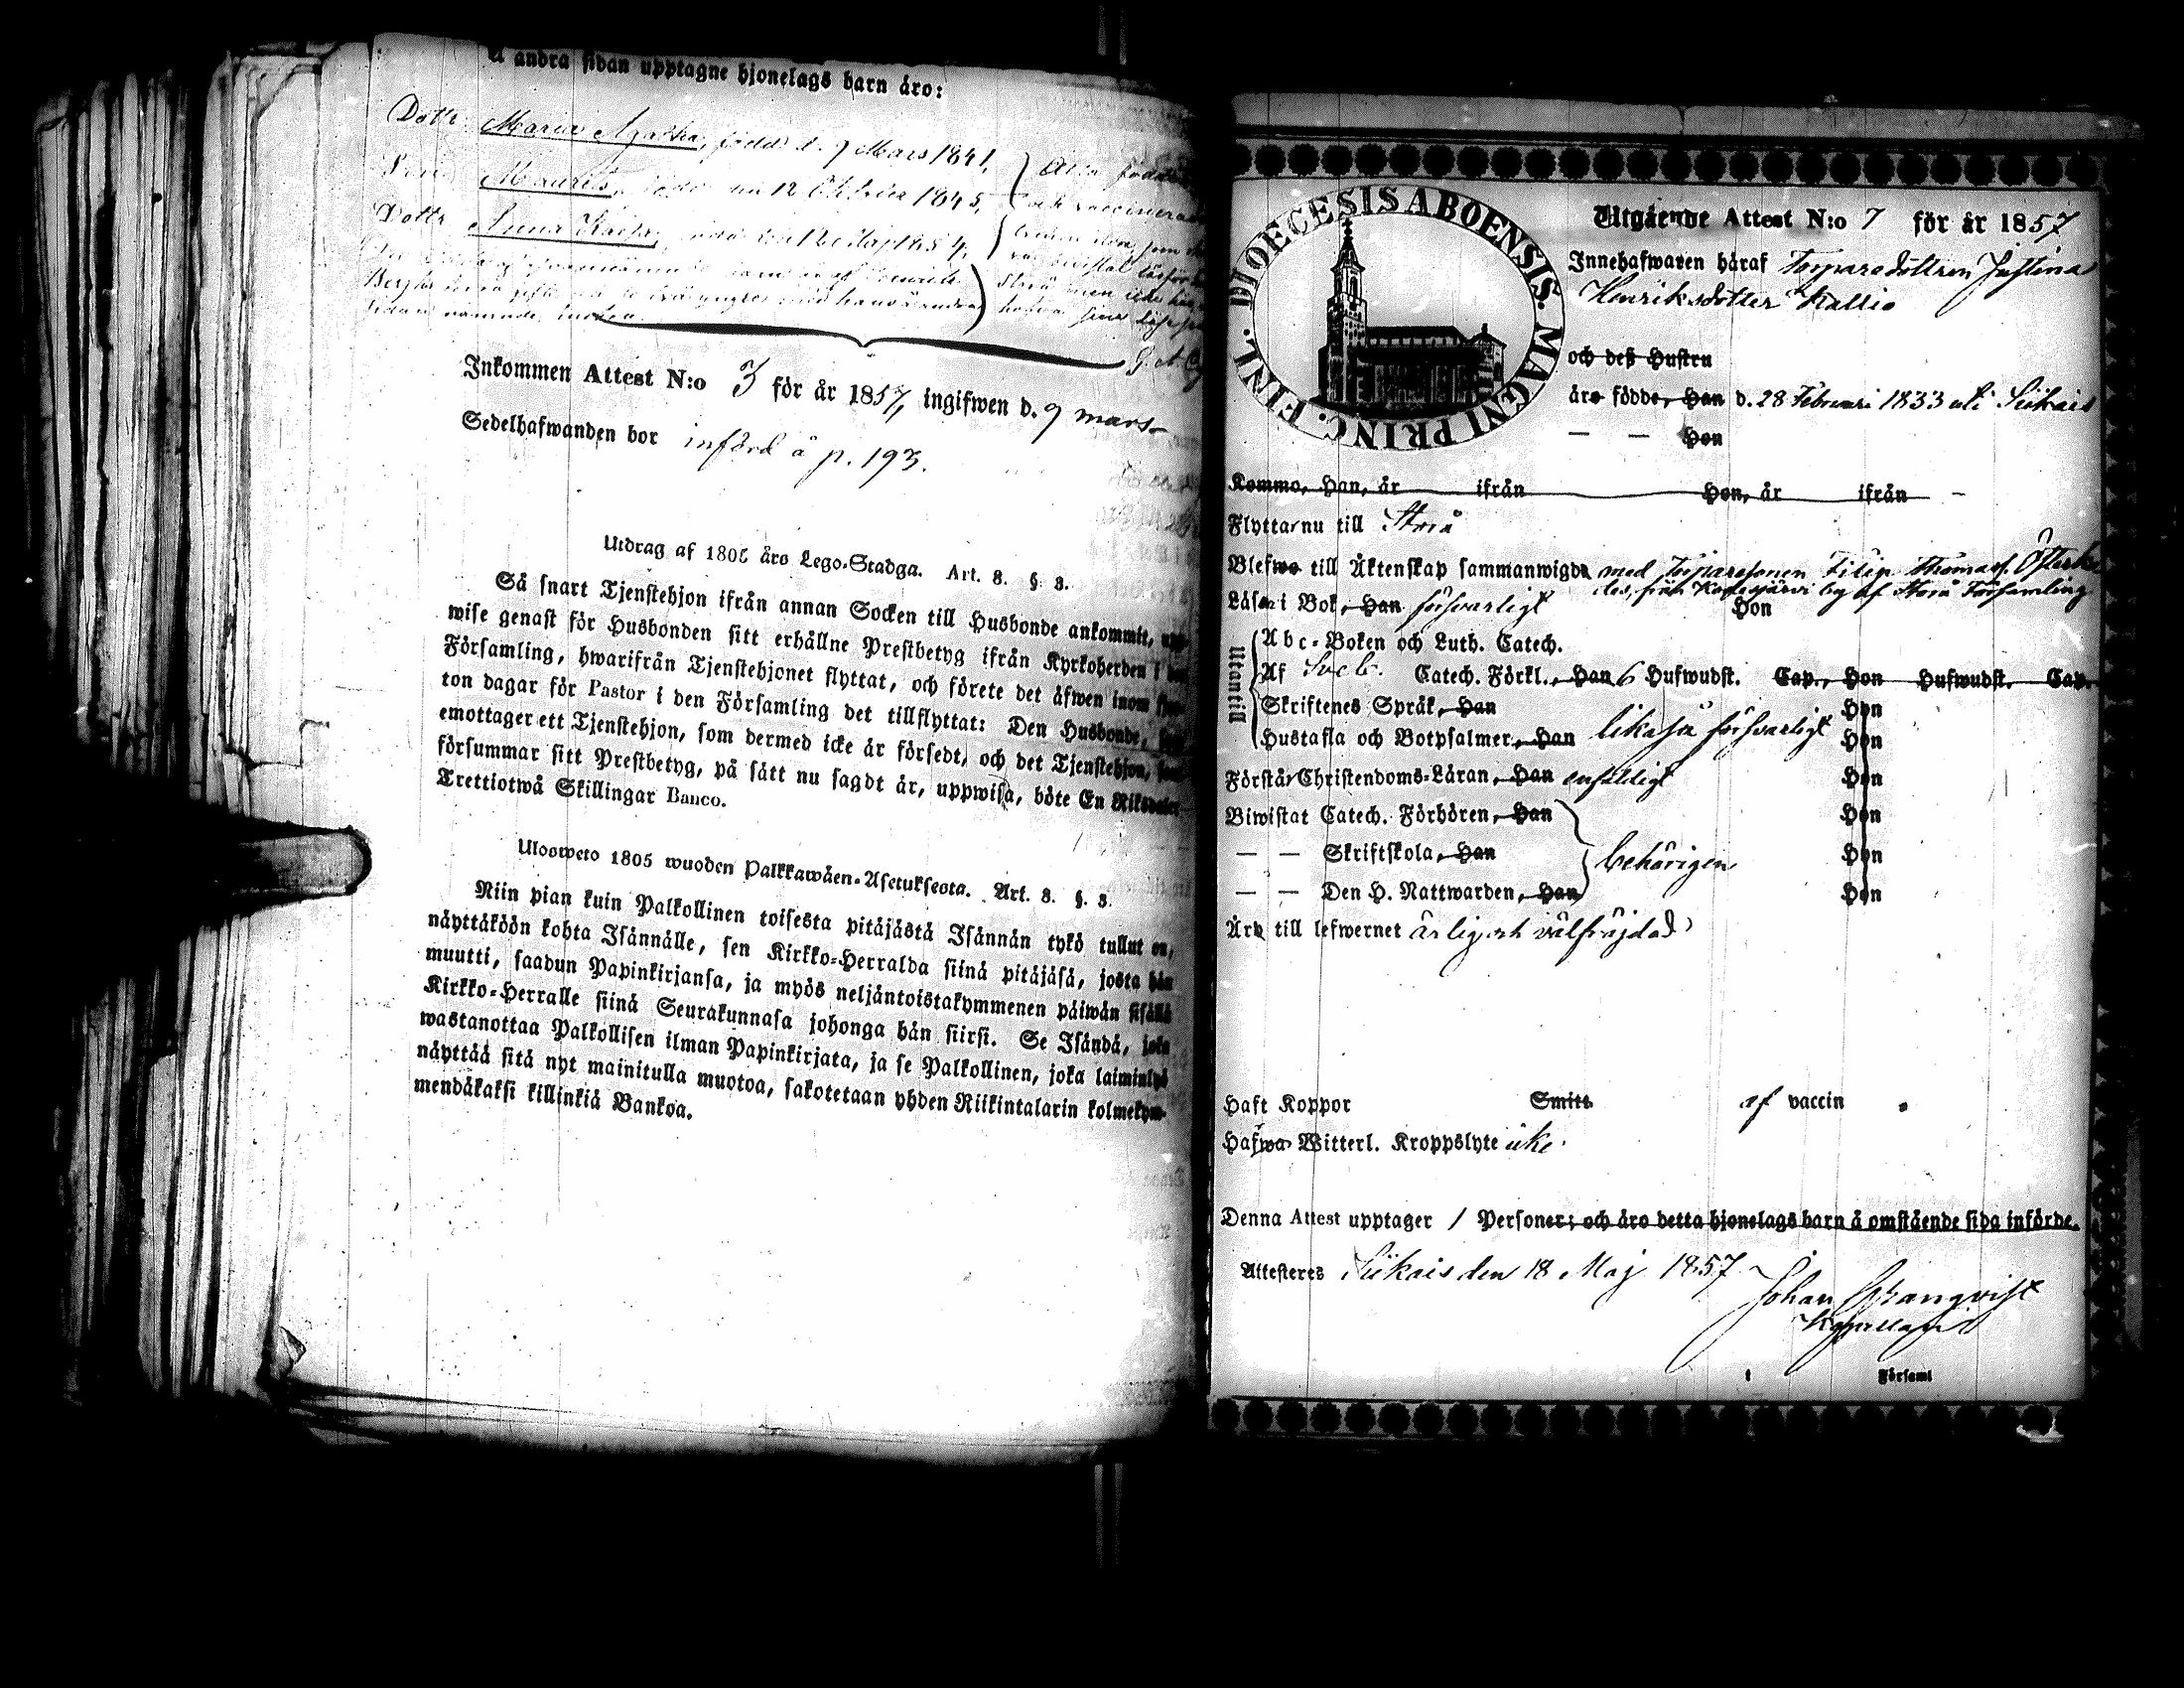 Å andra sidan upptagne hjonelags barn äro:
Dottr. Maria Agatha, född d. 9 Mars 1841,
Maurits, 12 Oktober 1845,
Dottr. Anna
Inkommen Attest N:o 3 för år 1857, ingifwen d. 9 mars
Sedelhafwanden bor införd å p. 193.
Utdrag af 1805 åro Lego-Stadga. Art. 8. §. 3.
Så snart Tjenstehjon ifrån annan Socken till Husbonde ankommit, upp-
wise genast för Husbonden sitt erhållne Prestbetyg ifrån Kyrkoherden i
Församling, hwarifrån Tjenstehjonet flyttat, och förete det äfwen inom
ton dagar för Pastor i den Församling det tillflyttat: Den Husbonde,
emottager ett Tjenstehjon, som dermed icke är försedt, och det Tjenstehjon,
försummar sitt Prestbetyg, på sätt nu sagdt är, uppwisa, böte En Riksdaler
Trettiotwå Skillingar Banco.
Ulosweto 1805 wuoden Palkkawäen-Asetuksesta. Art. 8. §. 3.
Niin pian kuin Palkollinen toisesta pitäjästä Isännän tykö tullut on,
näyttäköön kohta Isännälle, sen Kirkko-Herralda siinä pitäjäsä, josta hän
muutti, saadun Papinkirjansa, ja myös neljäntoistakymmenen päiwän sisällä
Kirkko-Herralle siinä Seurakunnasa johonga hän siirsi. Se Isändä, joka
wastanottaa Palkollisen ilman Papinkirjata, ja se Palkollinen, joka laiminlyö
näyttää sitä nyt mainitulla muotoa, sakotetaan yhden Riikintalarin kolmekym-
mendäkaksi killinkiä Bankoa.
DIOECESIS ABOENSIS. MAGNI PRINC. FINL.
Utgående Attest N:o 7 för år 1857
Innehafwaren häraf Torparedottren Justina
Henriksdotter Kallio
och deß Hustru
äro födde, Han d. 28 Februari 1833 uti Siikais
— — Hon
Komma, Han, år ifrån Hon, år ifrån
Flyttar nu till Storå
Blefwo till Äktenskap sammanwigde med Torparesonen Filip Thomass.
från by af Storå Församling
Läsa i Bok, Han försvarligt Hon
Utantill
Abc-Boken och Luth. Catech.
Af Sveb. Catech. Förkl., Han 6 Hufwudst. Cap., Hon Hufwudst. Cap.
Skriftenes Språk, Han Hon
Hustafla och Botpsalmer, Han likaså försvarligt Hon
Förstår Christendoms-Läran, Han enfaldigt Hon
Biwistat Catech. Förhören, Han Hon
— — Skriftskola, Han behörigen Hon
— — Den H. Nattwarden, Han Hon
Är till lefwernet ärlig och välfräjdad
Haft Koppor Smitt af vaccin
Hafwa Witterl. Kroppslyte icke
Denna Attest upptager 1 Personer; och äro detta hjonelags barn å omstående sida införde.
Attesteres Siikais den 18 Maj 1857
Johan
Kapellan
i Församl